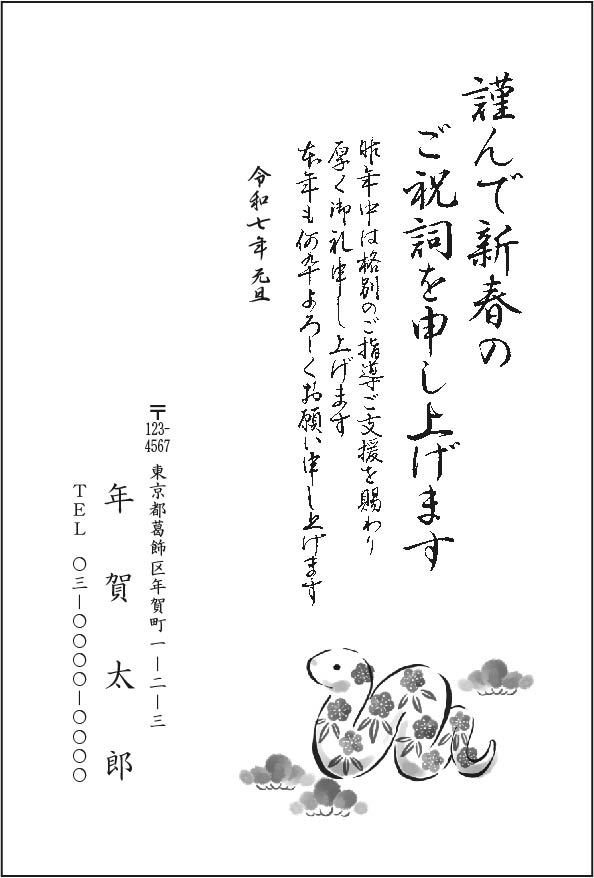 謹んで新春の
ご祝詞を申し上げます
昨年中は格別のご指導ご支援を賜わり
厚く御礼申し上げます
本年も何卒よろしくお願い申し上げます
令和七年 元旦
〒123-4567 東京都葛飾区年賀町一―二―三
年賀太郎
TEL 〇三―〇〇〇〇―〇〇〇〇